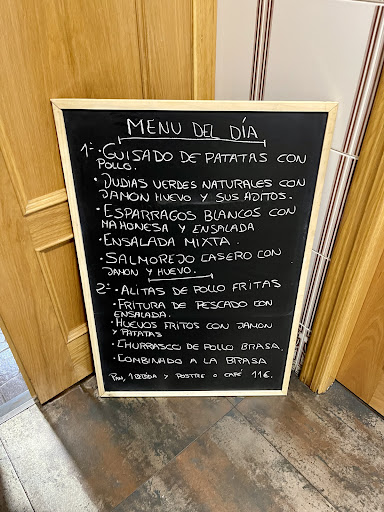 MENU DEL DÍA
1º- · GUISADO DE PATATAS CON
POLLO.
· JUDIAS VERDES NATURALES CON
JAMON HUEVO Y SUS AJITOS.
· ESPARRAGOS BLANCOS CON
MAHONESA Y ENSALADA
· ENSALADA MIXTA.
· SALMOREJO CASERO CON
JAMON Y HUEVO.
2º- · ALITAS DE POLLO FRITAS
· FRITURA DE PESCADO CON
ENSALADA.
· HUEVOS FRITOS CON JAMON
Y PATATAS
· CHURRASCO DE POLLO BRASA.
· COMBINADO A LA BRASA
PAN, 1 BEBIDA Y POSTRE O CAFÉ 11€.